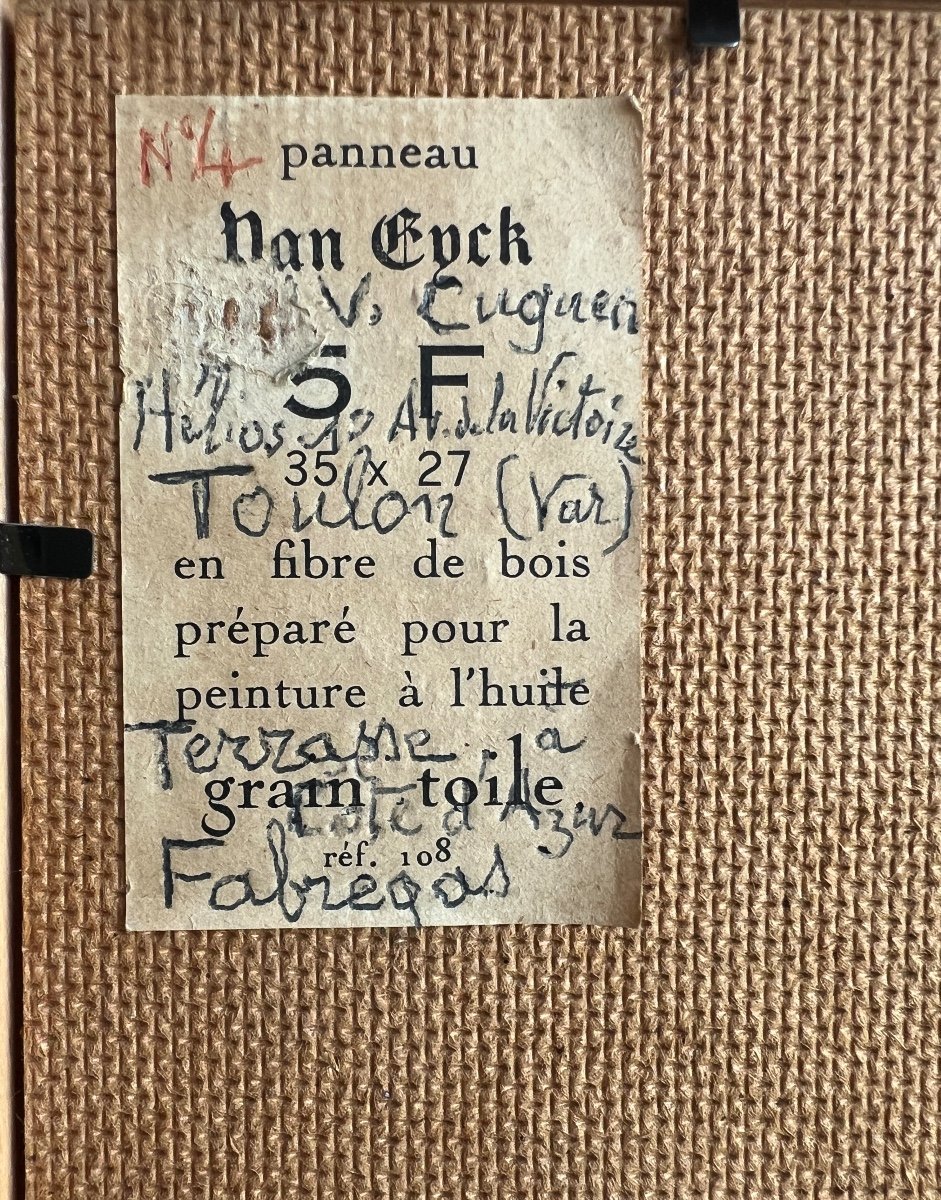 N° 4 panneau
Van Eyck
V. Cuguen
5 F
Hélios Av. de la Victoire
35 x 27
Toulon (Var)
en fibre de bois
préparé pour la
peinture à l'huile
Terrasse a
grain toile
Côte d'Azur
réf. 108
Fabregas